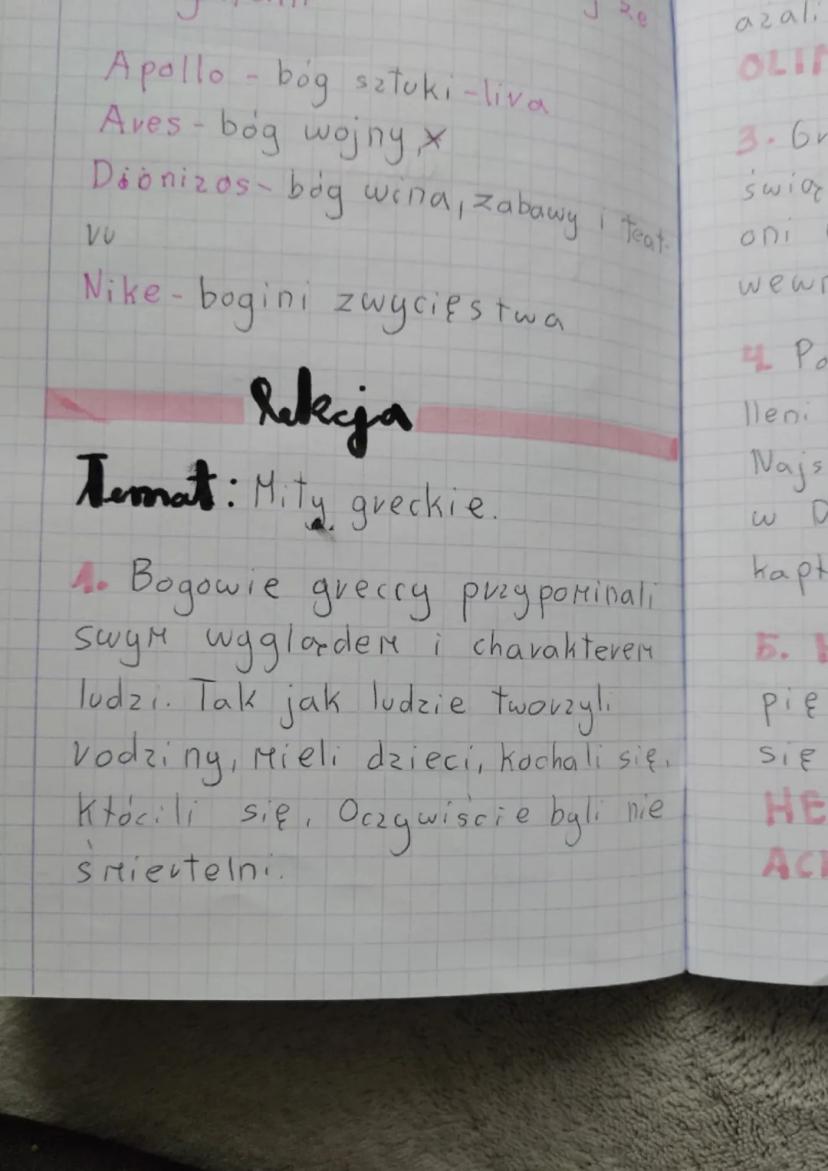 że
Apollo - bóg sztuki - lira
Ares - bóg wojny x
Dionizos - bóg wina, zabawy i teat-
ru
Nike - bogini zwycięstwa
Lekcja
Temat: Mity greckie.
1. Bogowie greccy przypominali
swym wyglądem i charakterem
ludzi. Tak jak ludzie tworzyli
rodziny, mieli dzieci, kochali się,
kłócili się. Oczywiście byli nie
śmiertelni.
azali
OLI
3. Gr
świą
oni
wewn
4. Po
lleni
Najs
w D
kapł
5.
pię
się
HE
ACH